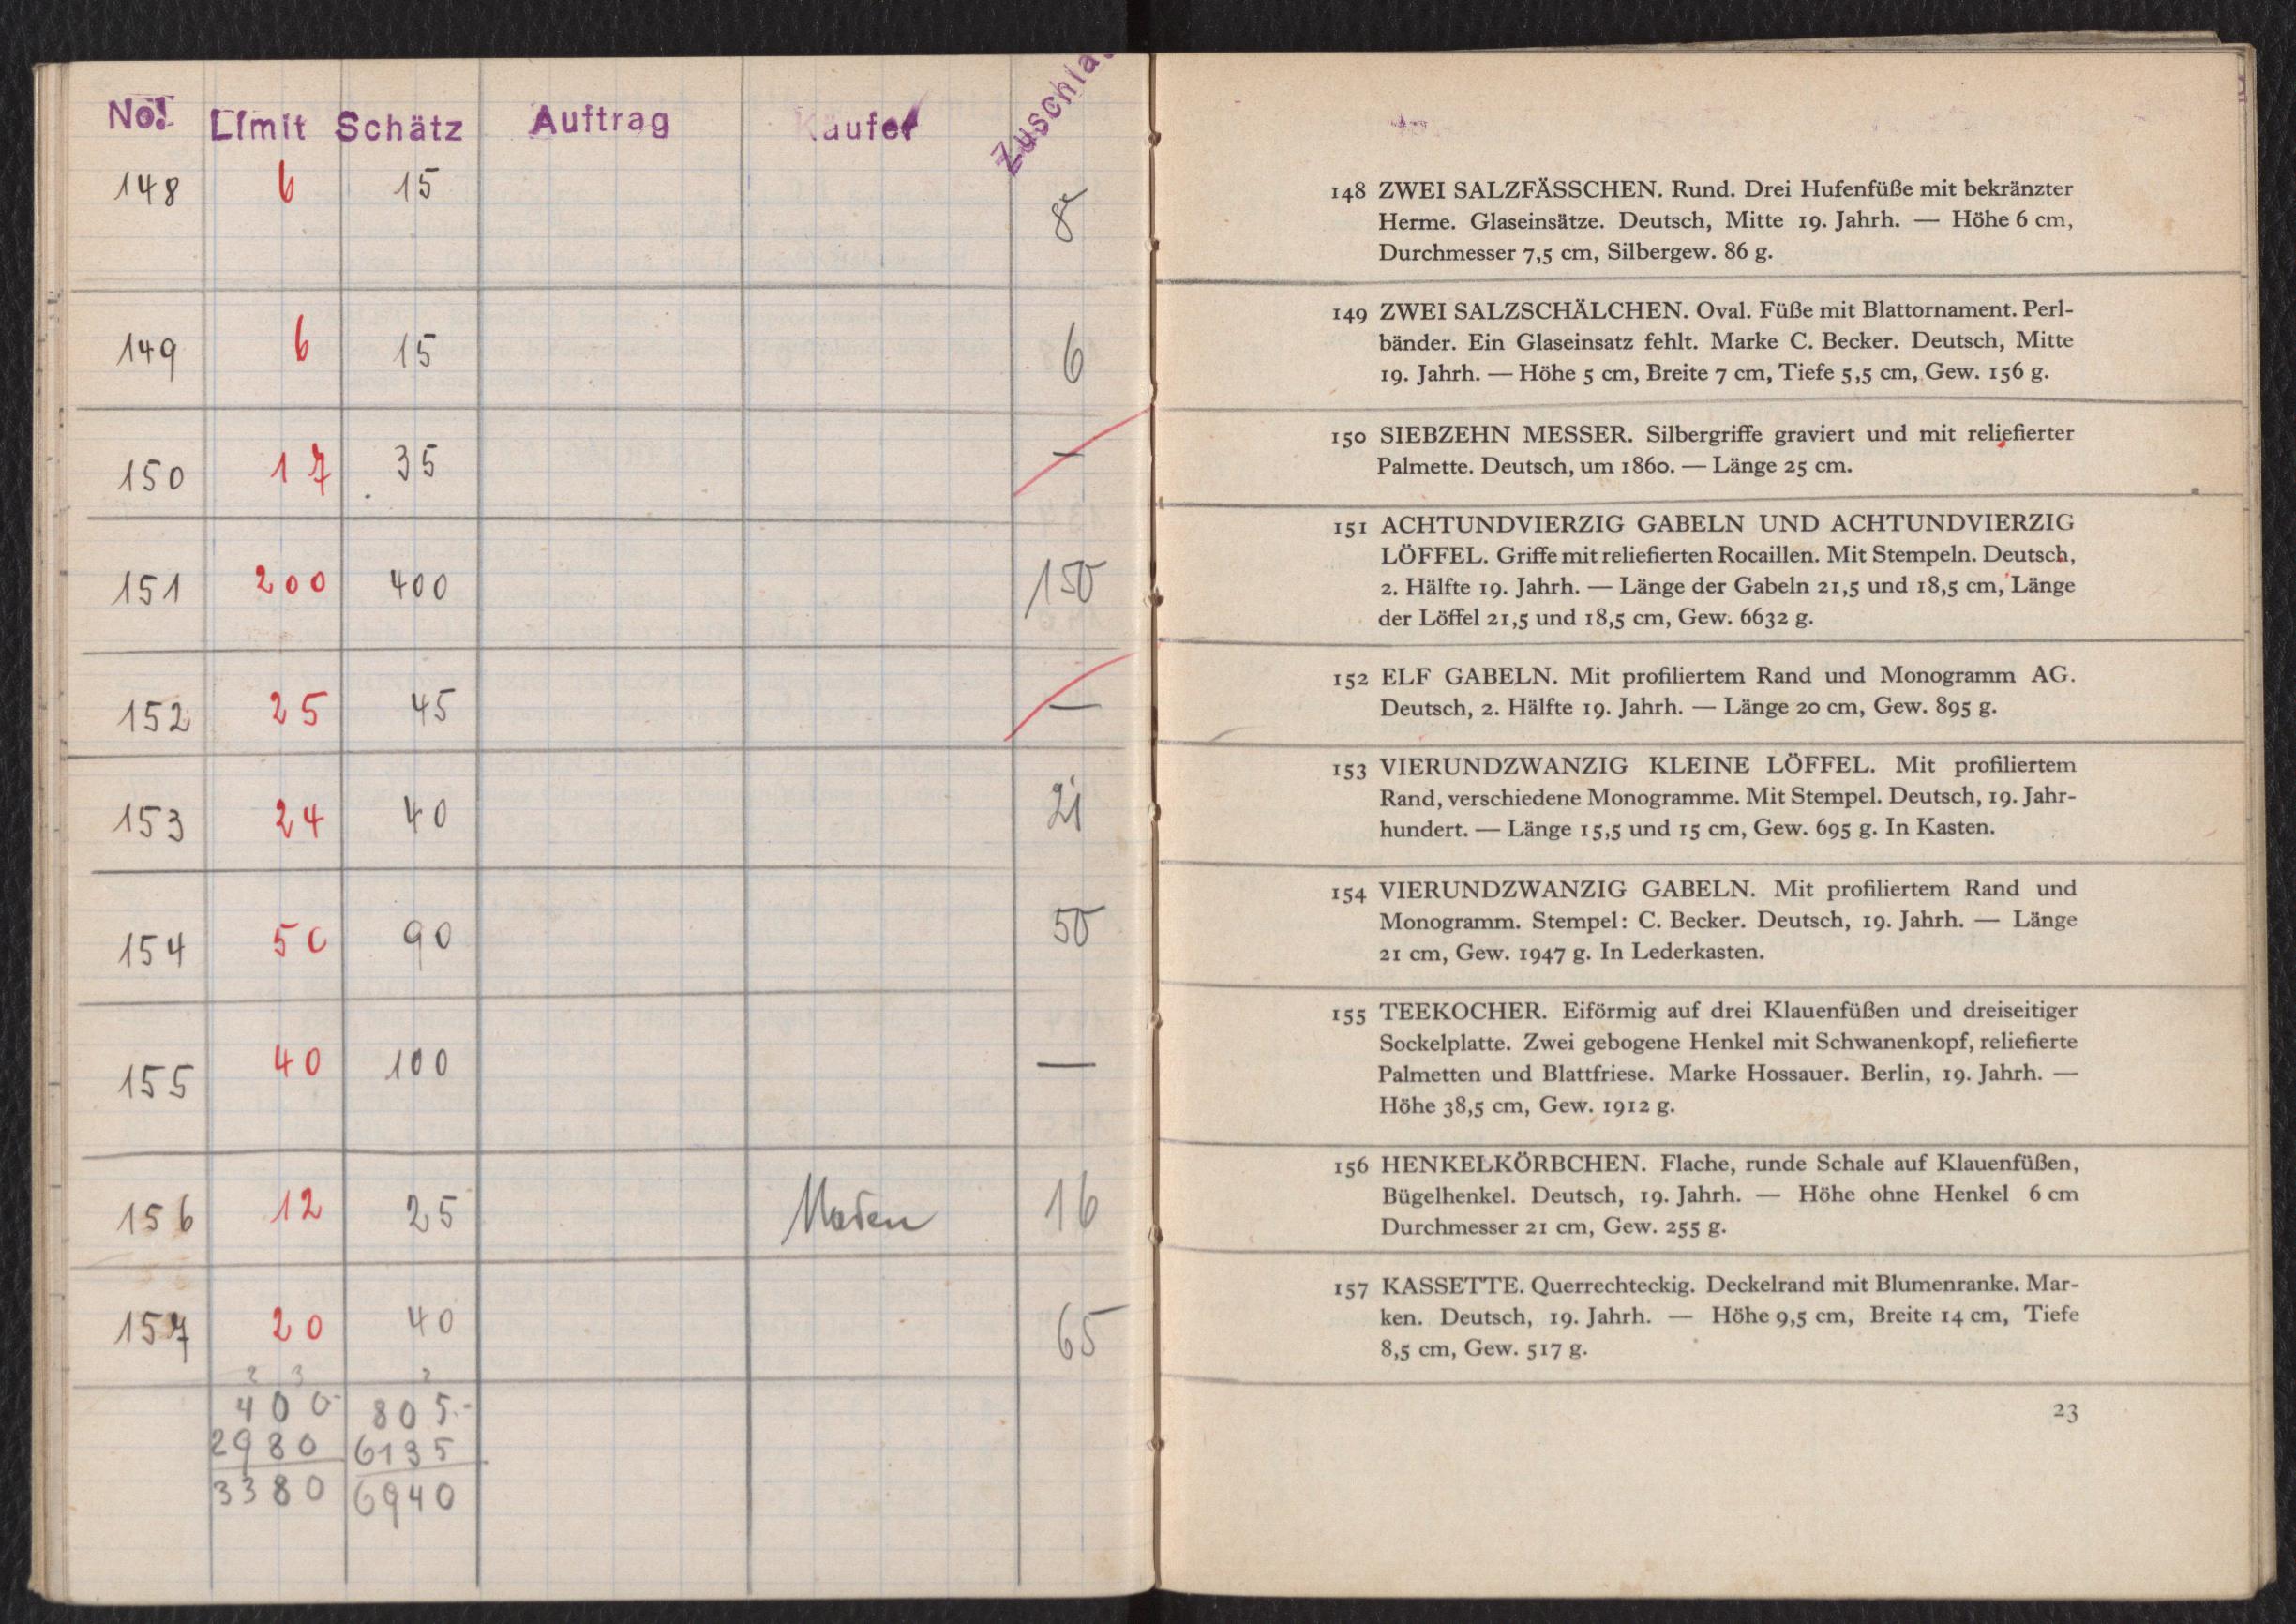 No. Limit Schätz Auftrag Käufer Zuschlag
148 6 15 8
149 6 15 6
150 17 35 —
151 200 400 150
152 25 45 —
153 24 40 21
154 50 90 50
155 40 100 —
156 12 25 16
157 20 40 65
2 3 2
400- 805.-
2980 6135
3380 6940
148 ZWEI SALZFÄSSCHEN. Rund. Drei Hufenfüße mit bekränzter
Herme. Glaseinsätze. Deutsch, Mitte 19. Jahrh. — Höhe 6 cm,
Durchmesser 7,5 cm, Silbergew. 86 g.
149 ZWEI SALZSCHÄLCHEN. Oval. Füße mit Blattornament. Perl-
bänder. Ein Glaseinsatz fehlt. Marke C. Becker. Deutsch, Mitte
19. Jahrh. — Höhe 5 cm, Breite 7 cm, Tiefe 5,5 cm, Gew. 156 g.
150 SIEBZEHN MESSER. Silbergriffe graviert und mit reliefierter
Palmette. Deutsch, um 1860. — Länge 25 cm.
151 ACHTUNDVIERZIG GABELN UND ACHTUNDVIERZIG
LÖFFEL. Griffe mit reliefierten Rocaillen. Mit Stempeln. Deutsch,
2. Hälfte 19. Jahrh. — Länge der Gabeln 21,5 und 18,5 cm, Länge
der Löffel 21,5 und 18,5 cm, Gew. 6632 g.
152 ELF GABELN. Mit profiliertem Rand und Monogramm AG.
Deutsch, 2. Hälfte 19. Jahrh. — Länge 20 cm, Gew. 895 g.
153 VIERUNDZWANZIG KLEINE LÖFFEL. Mit profiliertem
Rand, verschiedene Monogramme. Mit Stempel. Deutsch, 19. Jahr-
hundert. — Länge 15,5 und 15 cm, Gew. 695 g. In Kasten.
154 VIERUNDZWANZIG GABELN. Mit profiliertem Rand und
Monogramm. Stempel: C. Becker. Deutsch, 19. Jahrh. — Länge
21 cm, Gew. 1947 g. In Lederkasten.
155 TEEKOCHER. Eiförmig auf drei Klauenfüßen und dreiseitiger
Sockelplatte. Zwei gebogene Henkel mit Schwanenkopf, reliefierte
Palmetten und Blattfriese. Marke Hossauer. Berlin, 19. Jahrh. —
Höhe 38,5 cm, Gew. 1912 g.
156 HENKELKÖRBCHEN. Flache, runde Schale auf Klauenfüßen,
Bügelhenkel. Deutsch, 19. Jahrh. — Höhe ohne Henkel 6 cm
Durchmesser 21 cm, Gew. 255 g.
157 KASSETTE. Querrechteckig. Deckelrand mit Blumenranke. Mar-
ken. Deutsch, 19. Jahrh. — Höhe 9,5 cm, Breite 14 cm, Tiefe
8,5 cm, Gew. 517 g.
23